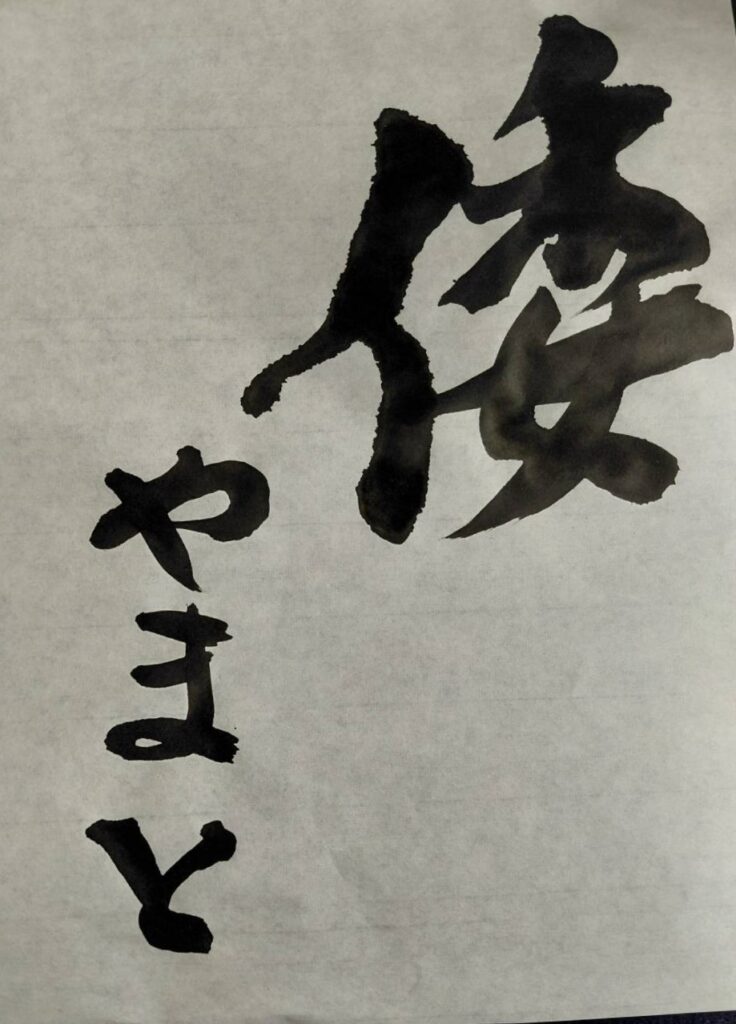 倭
やまと